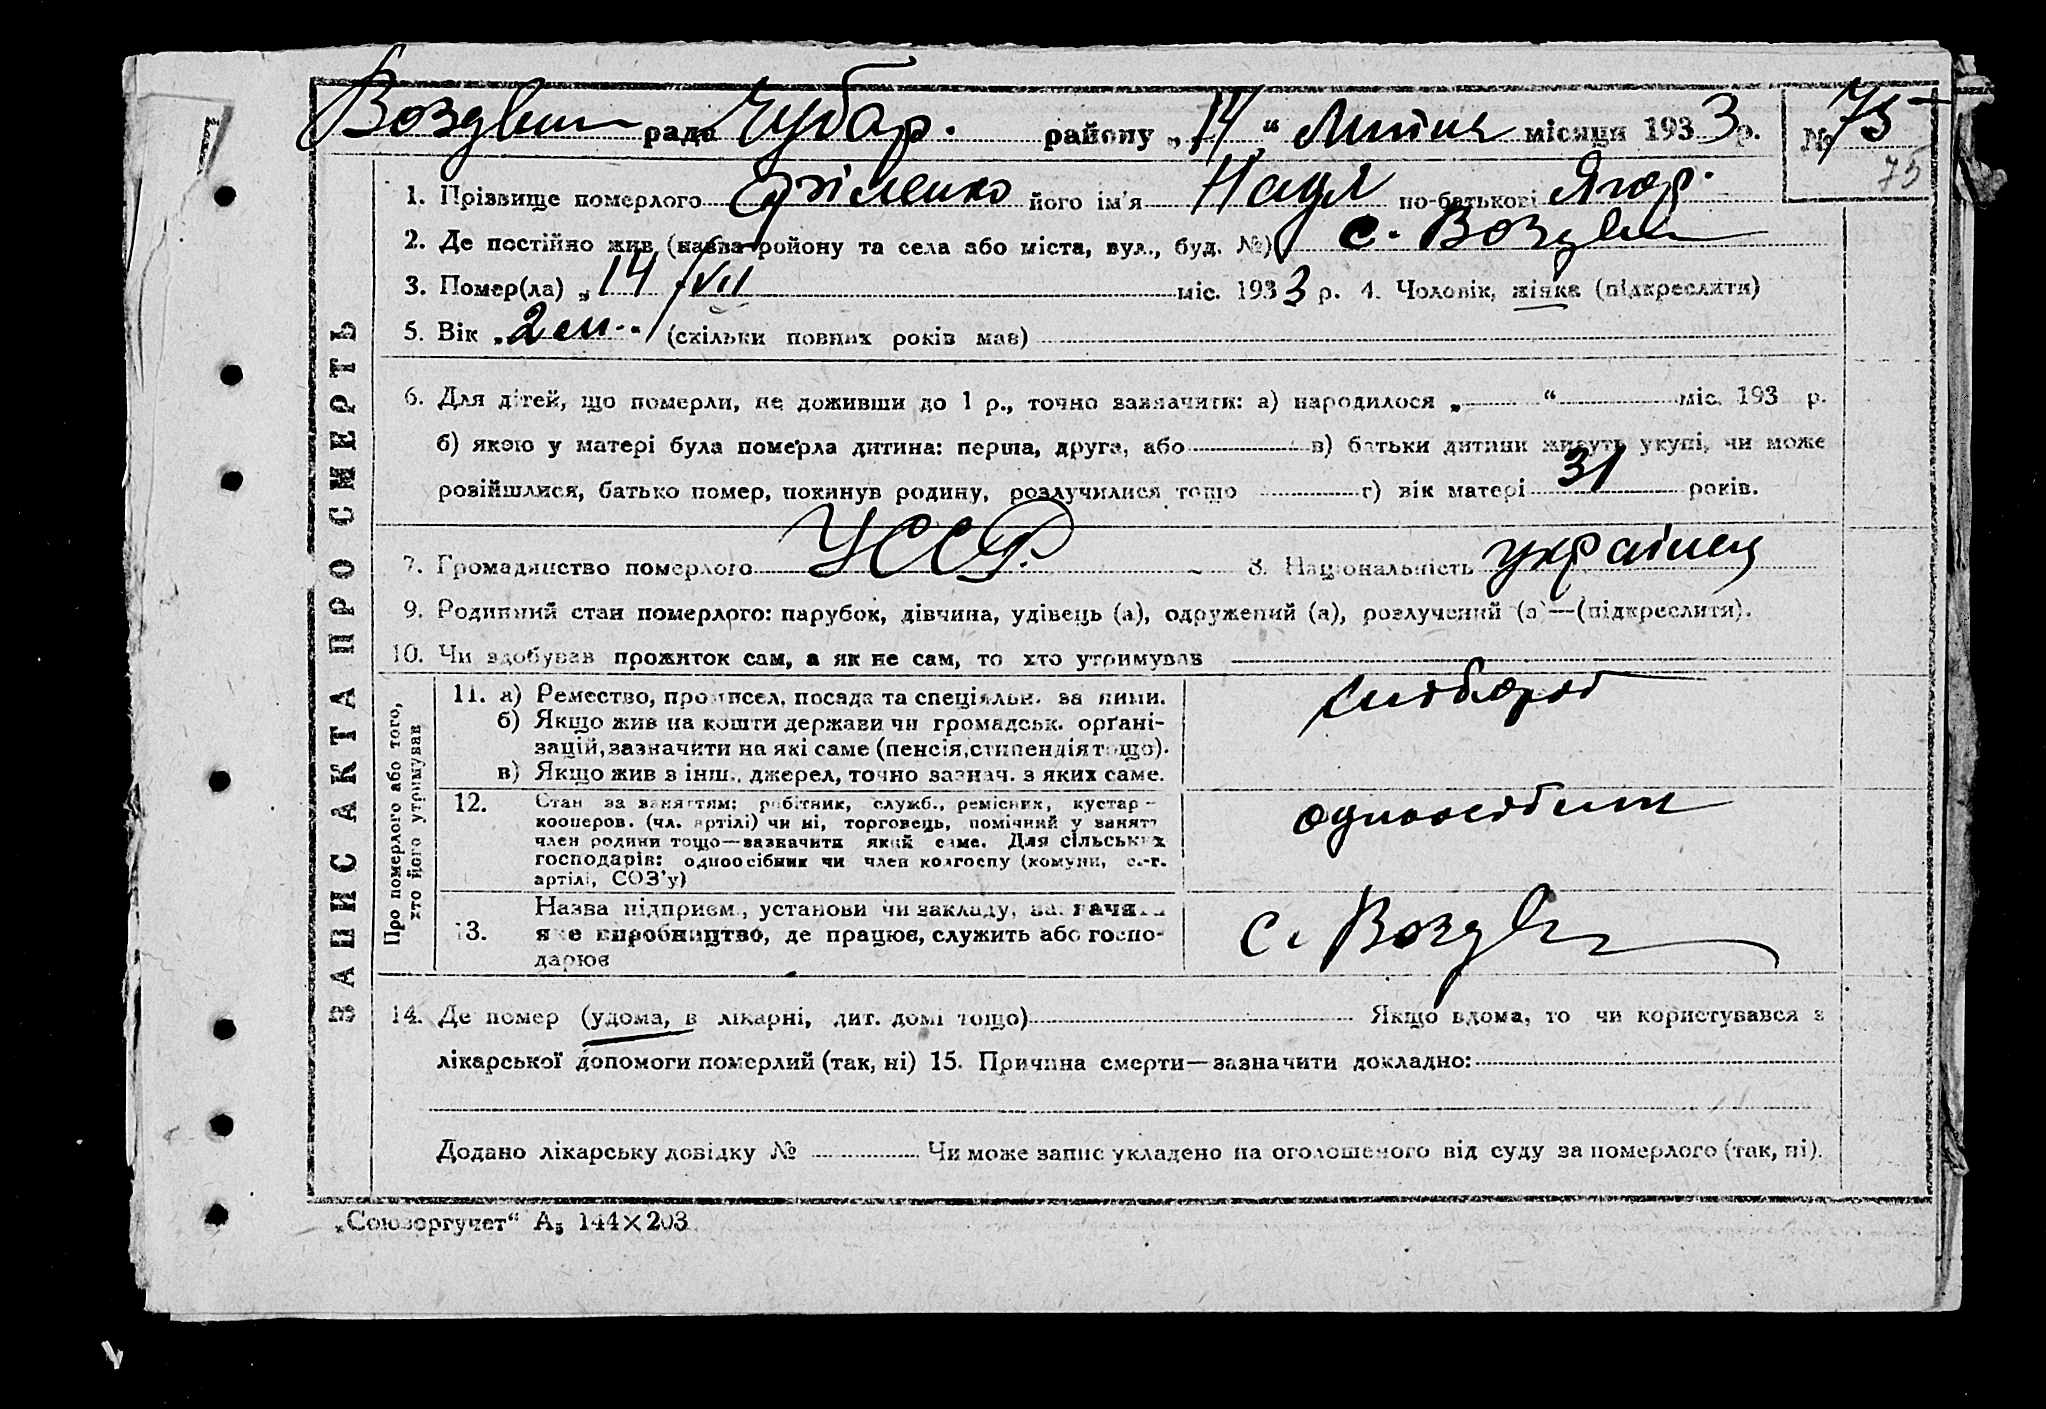 Воздвиж рада Чубар. району „14“ Липня місяця 1933 р. № 75
75
1. Прізвище померлого його ім'я Надя по-батькові Ягор.
2. Де постійно жив (назва ройону та села або міста, вул., буд. №) с. Воздвиж
3. Помер(ла) „14 /VII міс. 1933 р. 4. Чоловік, жінка (підкреслити)
5. Вік „2 м.“ (скільки повних років мав)
6. Для дітей, що померли, не доживши до 1 р., точно зазначити: а) народилося „ “ міс. 193 р.
б) якою у матері була померла дитина: перша, друга, або в) батьки дитини живуть укупі, чи може
розійшлися, батько помер, покинув родину, розлучилися тощо г) вік матері 31 років.
7. Громадянство померлого УССР. 8. Національність українец
9. Родинний стан померлого: парубок, дівчина, удівець (а), одружений (а), розлучений (а)—(підкреслити).
10. Чи здобував прожиток сам, а як не сам, то хто утримував
ЗАПИС АКТА ПРО СМЕРТЬ
Про померлого або того,
хто його утримував
11. а) Ремество, промисел, посада та спеціяльн. за ними.
б) Якщо жив на кошти держави чи громадськ. орґані-
зацій, зазначити на які саме (пенсія, стипендія тощо).
в) Якщо жив з інш., джерел, точно зазнач. з яких саме.
хлібороб
12. Стан за заняттям: робітник, служб., ремісник, кустар-
кооперов. (чл. артілі) чи ні, торговець, помічний у занятт
член родини тощо—зазначити який саме. Для сільських
господарів: одноосібник чи член колгоспу (комуни, с.-г.
артілі, СОЗ'у)
одноосібник
13. Назва підприєм., установи чи закладу, зазначити
яке виробництво, де працює, служить або госпо-
дарює
с. Воздв
14. Де помер (удома, в лікарні, дит. домі тощо) Якщо вдома, то чи користувався з
лікарської допомоги померлий (так, ні) 15. Причина смерти—зазначити докладно:
Додано лікарську довідку № Чи може запис укладено на оголошеного від суду за померлого (так, ні).
„Союзоргучет“ А₅ 144×203